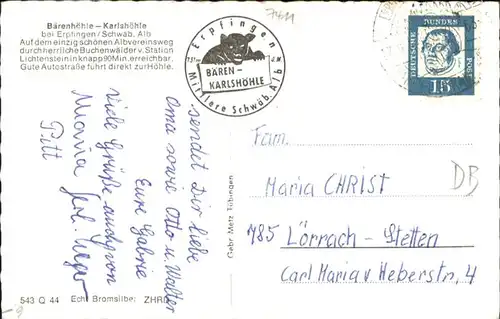 Bärenhöhle – Karlshöhle
bei Erpfingen / Schwäb. Alb
Auf dem einzig schönen Albvereinsweg
durch herrliche Buchenwälder v. Station
Lichtenstein in knapp 90 Min. erreichbar.
Gute Autostraße führt direkt zur Höhle.
Erpfingen
BÄREN-
KARLSHÖHLE
Mittlere Schwäb. Alb
DEUTSCHE
BUNDES
POST
15
sendet Dir liebe
Oma sowie Otto u. Walter
Eure Gabriele
viele Grüße auch von
Maria
Pitt
Gebr. Metz Tübingen
Fam.
Maria CHRIST
DB
785 Lörrach - Stetten
Carl Maria v Weberstr. 4
543 Q 44 Echt Bromsilber: ZHRD